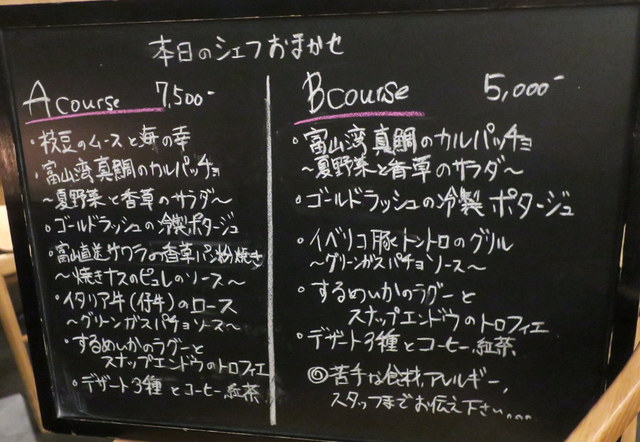 本日のシェフおまかせ
A course 7,500-
・枝豆のムースと海の幸
・富山湾真鯛のカルパッチョ
～夏野菜と香草のサラダ～
・ゴールドラッシュの冷製ポタージュ
・富山直送サワラの香草パン粉焼き
～焼きナスのピュレのソース～
・イタリア牛(仔牛)のロース
～グリーンガスパチョソース～
・するめいかのラグーと
スナップエンドウのトロフィエ
・デザート3種とコーヒー、紅茶
B course 5,000-
・富山湾真鯛のカルパッチョ
～夏野菜と香草のサラダ～
・ゴールドラッシュの冷製ポタージュ
・イベリコ豚トントロのグリル
～グリーンガスパチョソース～
・するめいかのラグーと
スナップエンドウのトロフィエ
・デザート3種とコーヒー、紅茶
◎苦手な食材、アレルギー、
スタッフまでお伝え下さい。。。。